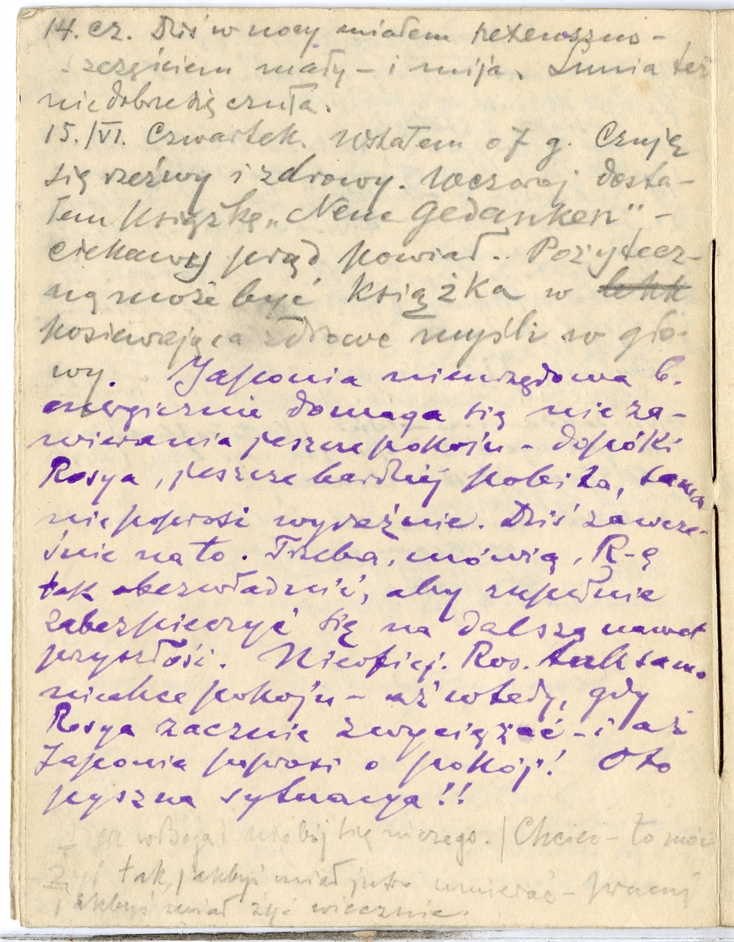 14. cz. Dziś w nocy miałem
szczęściem mały – i mija. Lunia też
niedobrze się czuła.
15./VI. Czwartek. Wstałem o 7 g. Czuję
się rzeźwy i zdrowy. Wczoraj dosta-
łem książkę „Neue Gedanken" –
ciekawy prąd powiał. Pożytecz-
ną może być książka w
posiewająca zdrowe myśli w gło-
wy. Japonia nieurzędowa b.
energicznie domaga się nieza-
wierania jeszcze pokoju – dopóki
Rosya, jeszcze bardziej pobita, sama
nie poprosi wyraźnie. Dziś zawcze-
śnie na to. Trzeba, mówią, R-ę
tak obezwładnić, aby zupełnie
zabezpieczyć się na dalszą nawet
przyszłość. Nieoficj. Ros. tak samo
nie chce pokoju – aż wtedy, gdy
Rosya zacznie zwyciężać – i aż
Japonia poprosi o pokój! Oto
pyszna sytuacya!!
nie bój się niczego. / Chcieć – to móc
Żyj tak, jakbyś miał jutro umierać – pracuj
jakbyś miał żyć wiecznie.